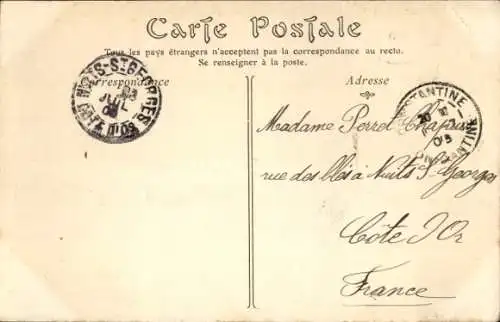 Carte Postale
Tous les pays étrangers n'acceptent pas la correspondance au recto.
Se renseigner à la poste.
Correspondance
Adresse
NUITS-ST-GEORGES
JUIL
COTE D'OR
CONSTANTINE
CONSTANTINE
Madame Perret
rue des blés à Nuits St Georges
Côte d'Or
France